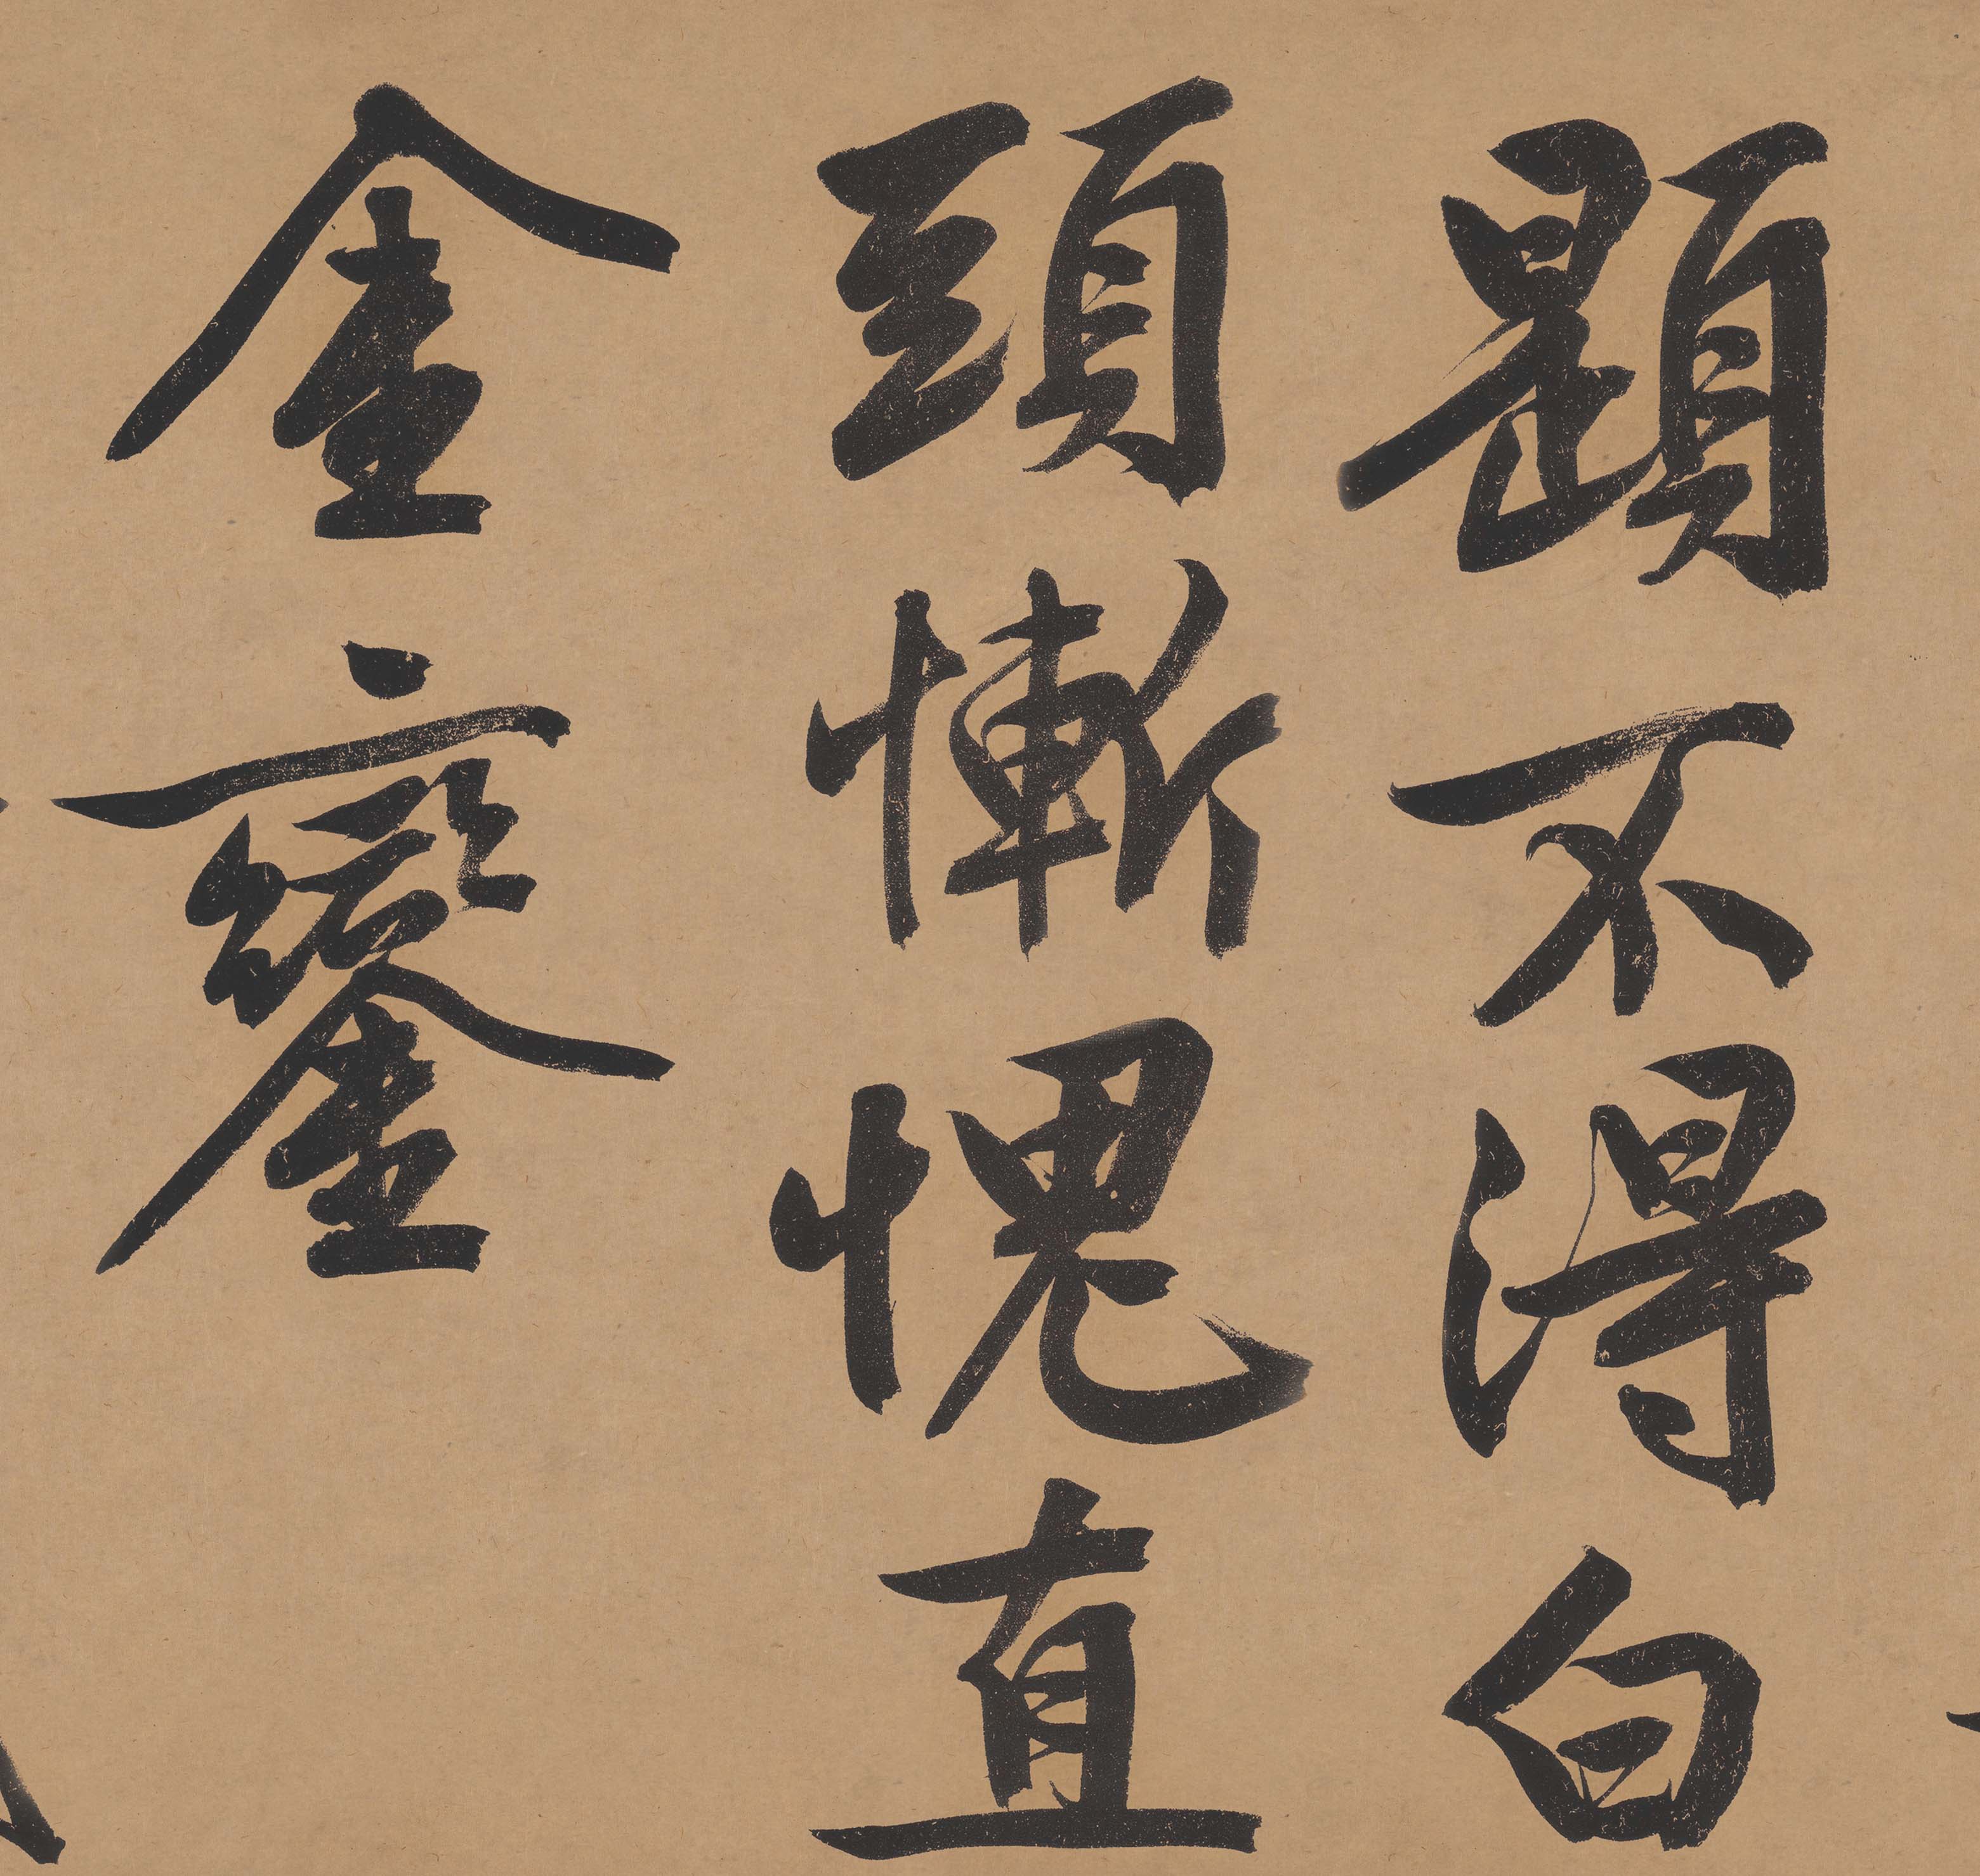 顕不得白
頭慚愧直
金鑾